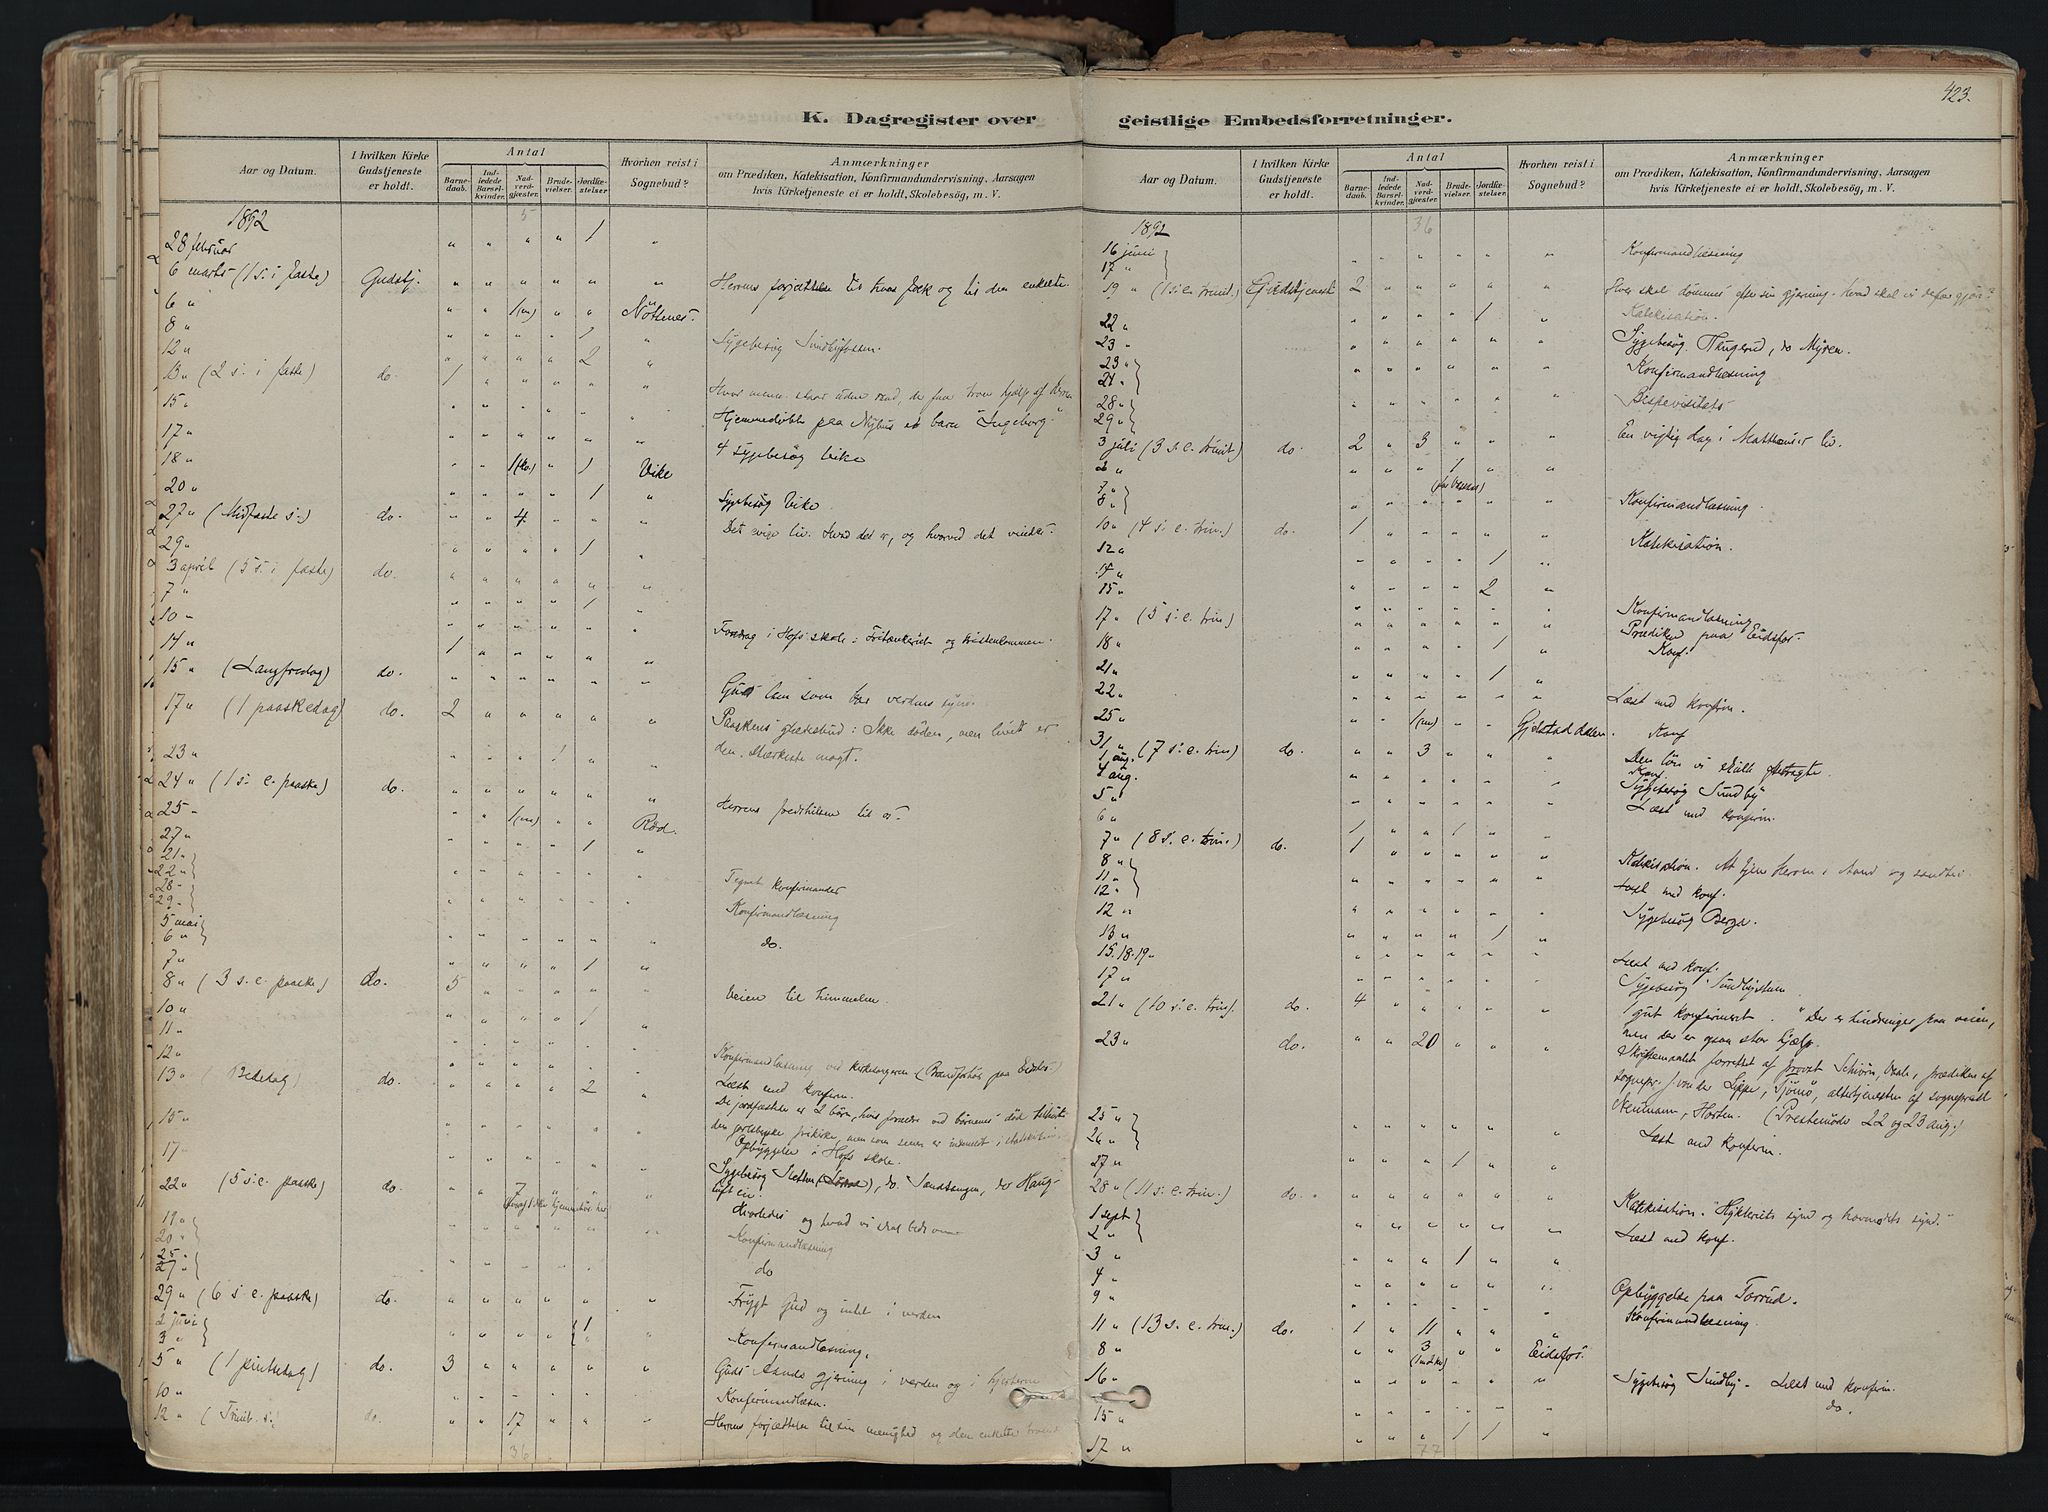 423.
K. Dagregister over geistlige Embedsforretninger.
Aar og Datum. I hvilken Kirke Gudstjeneste er holdt. Antal Barnedaab. Indledede Barselkvinder. Nadverdgjæster. Brudevielser. Jordfæstelser. Hvorhen reist i Sognebud? Anmærkninger om Prædiken, Katekisation, Konfirmandundervisning, Aarsagen hvis Kirketjeneste ei er holdt, Skolebesøg, m. V.
1892 5
28 februar " " " " 1 "
6 marts (1 s. i faste) Gudstj. " " " " " " Herrens forjættelse til hans folk og til den enkelte.
6 " " " 1(m) " " Nöklenes.
8 " " " " " 1 " Sygebesög Sundbyfossen.
12 " " " " " 2 "
13 " (2 s. i faste) do. 1 " " " " "
15 " " " " " " " Hjemmedöbt paa Nyhus et barn "Ingeborg"
17 " " " " " " " 4 sygebesög Vike
18 " " " 1(kv) " 1 Vike
20 " " " " " 1 " Sygebesög Vike
27 " (Midfaste s.) do. " " 4 " " " Det evige liv. Hvad det er, og hvorved det vindes.
29 " " " " " 1 "
3 april (5 s. i faste) do. " " " " " "
7 " " " " " 1 "
10 " " " " " " " Foredrag i Hofs skole: Fritænkeriet og kristendommen.
14 " 1 " " " " "
15 " (Langfredag) do. " " " " " " Guds lam som bar verdens synd.
17 " (1 paaskedag) do. 2 " " " " " Paaskens glædesbud: Ikke döden, men livet er
den stærkeste magt.
23 " " " " 1 " "
24 " (1 s. e. paaske) do. " " " " " " Herrens fredshilsen til os.
25 " " " 1(m) " " Röd.
27 " " " " " 1 "
21 "
22 " " " " " " " Tegnet konfirmander
28 "
29 " " " " " " " Konfirmandlæsning
5 mai
6 " " " " " " " do.
7 " " " " " 1 "
8 " (3 s. e. paaske) do. 5 " " " " " Veien til himmelen.
10 " " " " " 1 "
11 " " " " " " "
12 " " " " " " " Konfirmandlæsning ved kirkesangeren (Brandforhör paa Eidsfos)
13 " (Bededag) do. " " " " 2 " Læst med konfirm.
De jordfæstede er 2 börn, hvis forældre ved börnenes död tilhörte
15 " " " " " " " den apostolske frikirke, men som senere er indmeldt i statskirken.
17 " " " " " " " Opbyggelse i Hofs skole.
22 " (5 s. e. paaske) do. " " 7 " " " Sygebesög Sletten, do. Sandtangen, do Haug-
tuften.
19 " Hvorledes og hvad vi skal bede om
20 " " " " " " " Konfirmandlæsning
25 "
27 " " " " " " " do
29 " (6 s. e. paaske) do. " " " " " " Frygt Gud og intet i verden
2 juni 1
3 " " " " " " " Konfirmandlæsning.
5 " (1 pintsedag) do. 3 " " " " " Guds Aands gjerning i verden og i hjerterne
10 " " " " " " " Konfirmandlæsn.
12 " (Trinit. s.) do. " " 17 " " " Herrens forjættelse til sin menighed og den enkelte troende
36
1892 36
16 juni
17 " " " " " " " Konfirmandlæsning
19 " (1 s. e. trinit.) Gudstjenest 2 " " " " " Hver skal dömmes efter sin gjerning. Hvad skal vi derfor gjöre?
Katekisation.
22 " " " " " 1 "
23 " " " " " " " Sygebesög Haugerud, do Myren.
23 "
24 " " " " " " " Konfirmandlæsning
28 "
29 " " " " " " " Bispevisitats
3 juli (3 s. e. trinit.) do. 2 " 3 " " " En vigtig dag i Matthæus's liv.
" " " " 1 " "
7 "
8 " " " " " " " Konfirmandlæsning.
10 " (4 s. e. trin.) do. 1 " " " " " Katekisation.
12 " " " " " 1 "
14 " " " " " 2 "
15 " " " " " " " Konfirmandlæsning
17 " (5 s. e. trin) " " " " " " Prædiken paa Eidsfos.
18 " " " " " 1 " Konf.
21 " " " " " 1 "
22 " " " " " " " Læst med konfirm.
25 " " " 1(m) " " Gjelstaddalen. Konf
31 " (7 s. e. trin) do. " " 3 " " "
1 aug.
4 aug. " " " " " " " Sygebesög Sundby
5 " " " " " " " Læst med konfirm.
6 " 1 " " 1 " "
7 " (8 s. e. trin.) do. 1 " " " " " Katekisation. At tjene Herren i Aand og sandhed
8 "
11 "
12 " " " " " " " Læst med konf.
12 " " " " " " " Sygebesög Berga.
13 " " " " " 1 "
15.18.19 " " " " " " " Læst med konf.
17 " " " " " " " Sygebesög Sundbyshem
21 " (10 s. e. trin). do. 4 " " " " " 1 gut konfirmeret. "Der er hindringer paa veien,
men der er ogsaa stor hjælp.
23 " do. " " 20 " " " Skriftemaalet forrettet af provst Schiörn, Vaale, prædiken af
sognepr. J. von der Lippe, Tjömö, altertjenesten af sogneprest
Neumann, Horten. (Prestemöde 22 og 23 aug.)
25 "
26 " " " " " " " Læst med konfirm.
27 " " " " 1 " "
28 " (11 s. e. trin.) do. " " " " " " Katekisation. "Hykleriets synd og hovmodets synd."
1 sept
2 " " " " " " " Læst med konf.
3 " " " " 1 " "
4 " " " " " " " Opbyggelse paa Torrud.
9 " " " " " " " Konfirmandlæsning.
11 " (13 s. e. trin.) do. 1 " 11 " " "
8 " " " 3 " " Eidsfos.
16 " " " " " " " Sygebesög Sundby. Læst med konfirm.
15 " " " " " " " do.
17 " " " " 1 1 "
77